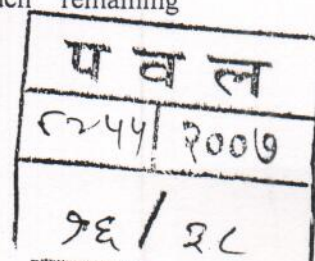 remaining
प व ल
८२५५ | २००७
१६ / ३८